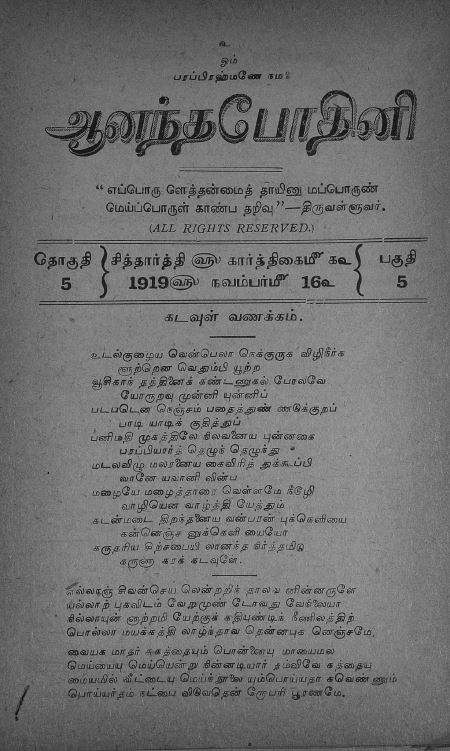 உ
ஓம்
பரப்பிரஹ்மணே நம:
ஆனந்தபோதினி
“எப்பொரு ளெத்தன்மைத் தாயினு மப்பொருண்
மெய்ப்பொருள் காண்ப தறிவு”—திருவள்ளுவர்.
(ALL RIGHTS RESERVED.)
தொகுதி 5
சித்தார்த்தி ௵ கார்த்திகைமீ கஉ
1919௵ நவம்பர்மீ 16உ
பகுதி 5
கடவுள் வணக்கம்.
உடல்குழைய வென்பெலா நெக்குருக விழிநீர்க
ளூற்றென வெதும்பி யூற்ற
வூசிகாந் தத்தினைக் கண்டணுகல் போலவே
யோருறவு முன்னி யுன்னிப்
படபடென நெஞ்சம் பதைத்துண் ணடுக்குறப்
பாடி யாடிக் குதித்துப்
பனிமதி முகத்திலே நிலவனைய புன்னகை
பரப்பியார்த் தெழுந் தெழுந்து
மடலவிழு மலரனைய கைவிரித் துக்கூப்பி
வானே யவானி லின்ப
மழையே மழைத்தாரை வெள்ளமே நீடூழி
வாழியென வாழ்த்தி யேத்தும்
கடன்மடை திறந்தனைய வன்பரன் புக்கெளியை
கன்னெஞ்ச னுக்கெளி யையோ
கருதரிய சிற்சபையி லானந்த நிர்த்தமிடு
கருணா கரக் கடவுளே.
எல்லாஞ் சிவன்செய லென்றறிந் தாலவ னின்னருளே
யல்லாற் புகலிடம் வேறுமுண் டோவது வேநிலையா
நில்லாயுன் னாற்றமி யேற்குக் கதியுண்டிந் நீணிலத்திற்
பொல்லா மயக்கத்தி லாழ்ந்தாவ தென்னபுக னெஞ்சமே,
வையக மாதர் சுகத்தையும் பொன்னையு மாயைமல
மெய்யையு மெய்யென்று நின்னடியார் தம்விவே கத்தையு
மையமில் வீட்டையு மெய்ந்நூலை யும்பொய்யதா கவெண் ணும்
பொய்யர்தம் நட்பை விடுவதென் றோபரி பூரணமே.